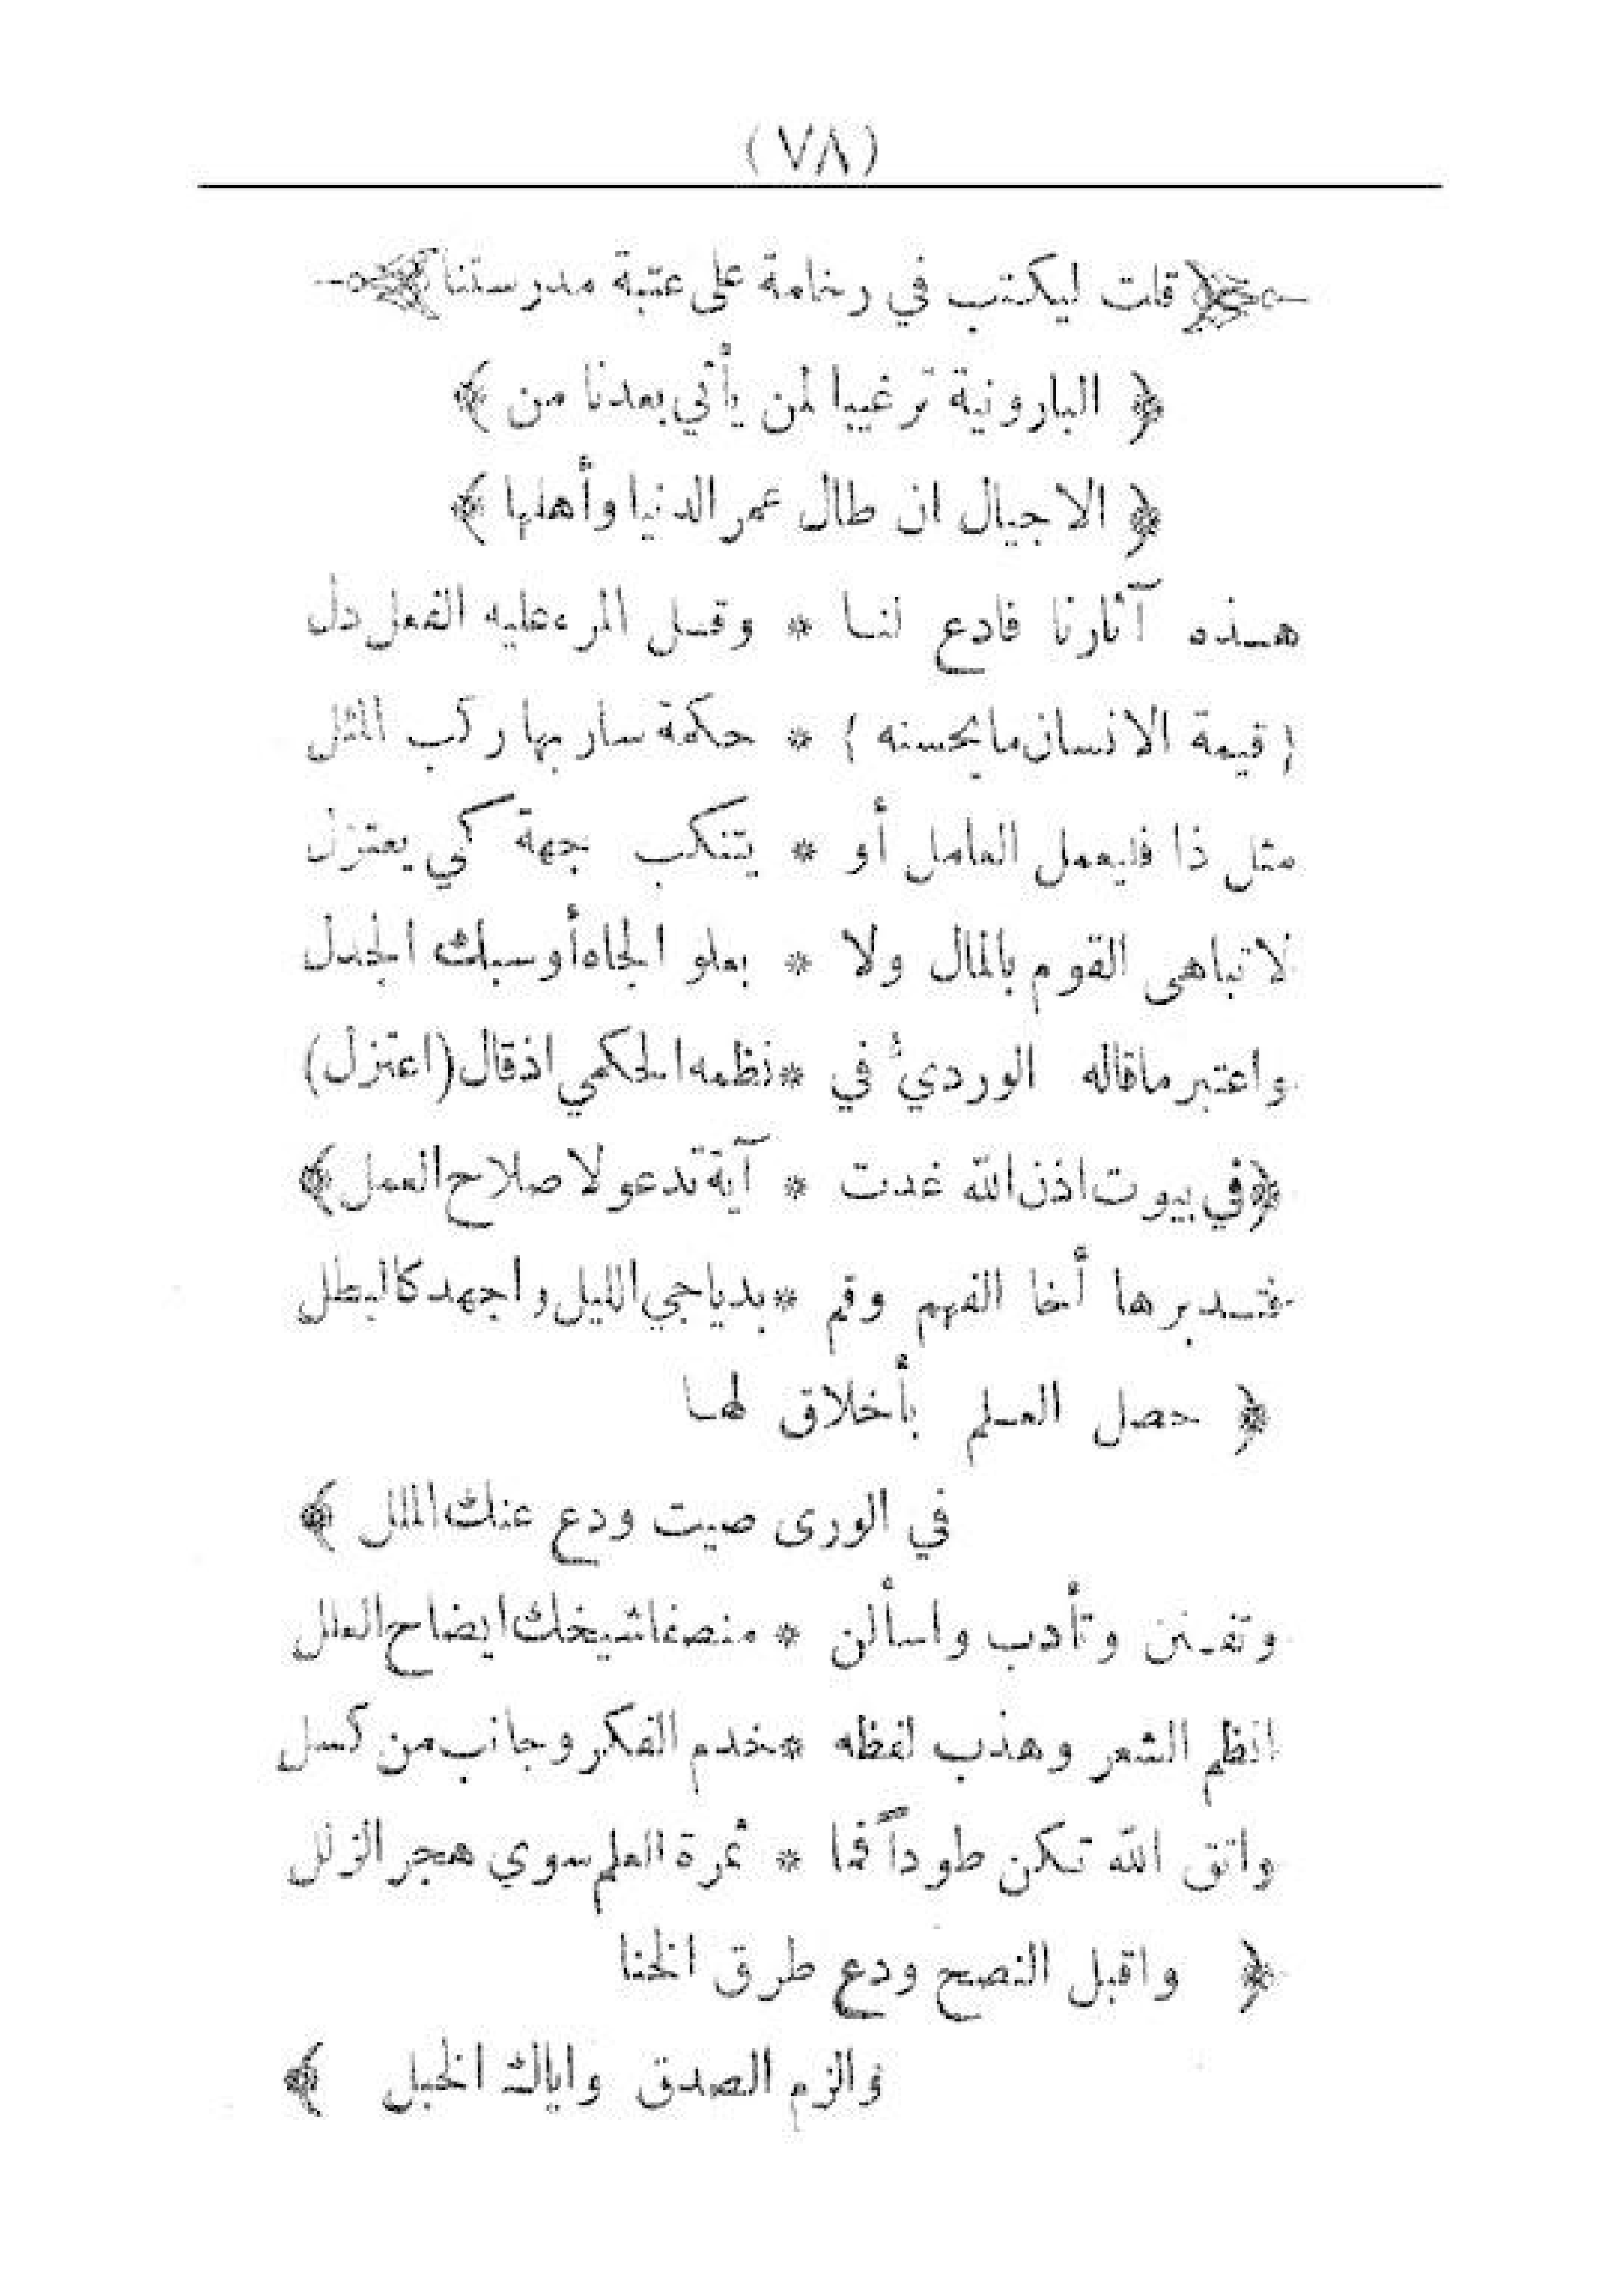 (٧٨)
﴿قلت ليكتب في رخامة على عتبة مدرستنا﴾
﴿ البارونية ترغيبا لمن يأتي بعدنا من ﴾
﴿ الاجيال ان طال عمر الدنيا وأهلها ﴾
هذه آثارنا فادع لنا * وقل المرء عليه الفعل دل
( قيمة الانسان ما يحسنه ) * حكمة سار بها ركب المثل
مثل ذا فليعمل العامل أو * يتنكب جهة كي يعتزل
لا تباهى القوم بالمال ولا * بعلو الجاه أو سبك الجدل
واعتبر ماقاله الورديُّ في * نظمه الحكمي اذ قال (اعتزل)
﴿في بيوت اذن الله غدت * آية تدعو لاصلاح العمل﴾
فتدبرها أخا الفهم وقم * بدياجي الليل واجهد كالبطل
﴿ حصل العلم بأخلاق لها
في الورى صيت ودع عنك الملل ﴾
وتفنن وتأدب واسألن * منصفا شيخك ايضاح العلل
انظم الشعر وهذب لفظه * خدم الفكر وجانب من كسل
واتق الله تكن طوداً فما * ثمرة العلم سوي هجر الزلل
﴿ واقبل النصح ودع طرق الخنا
والزم الصدق واياك الخبل ﴾